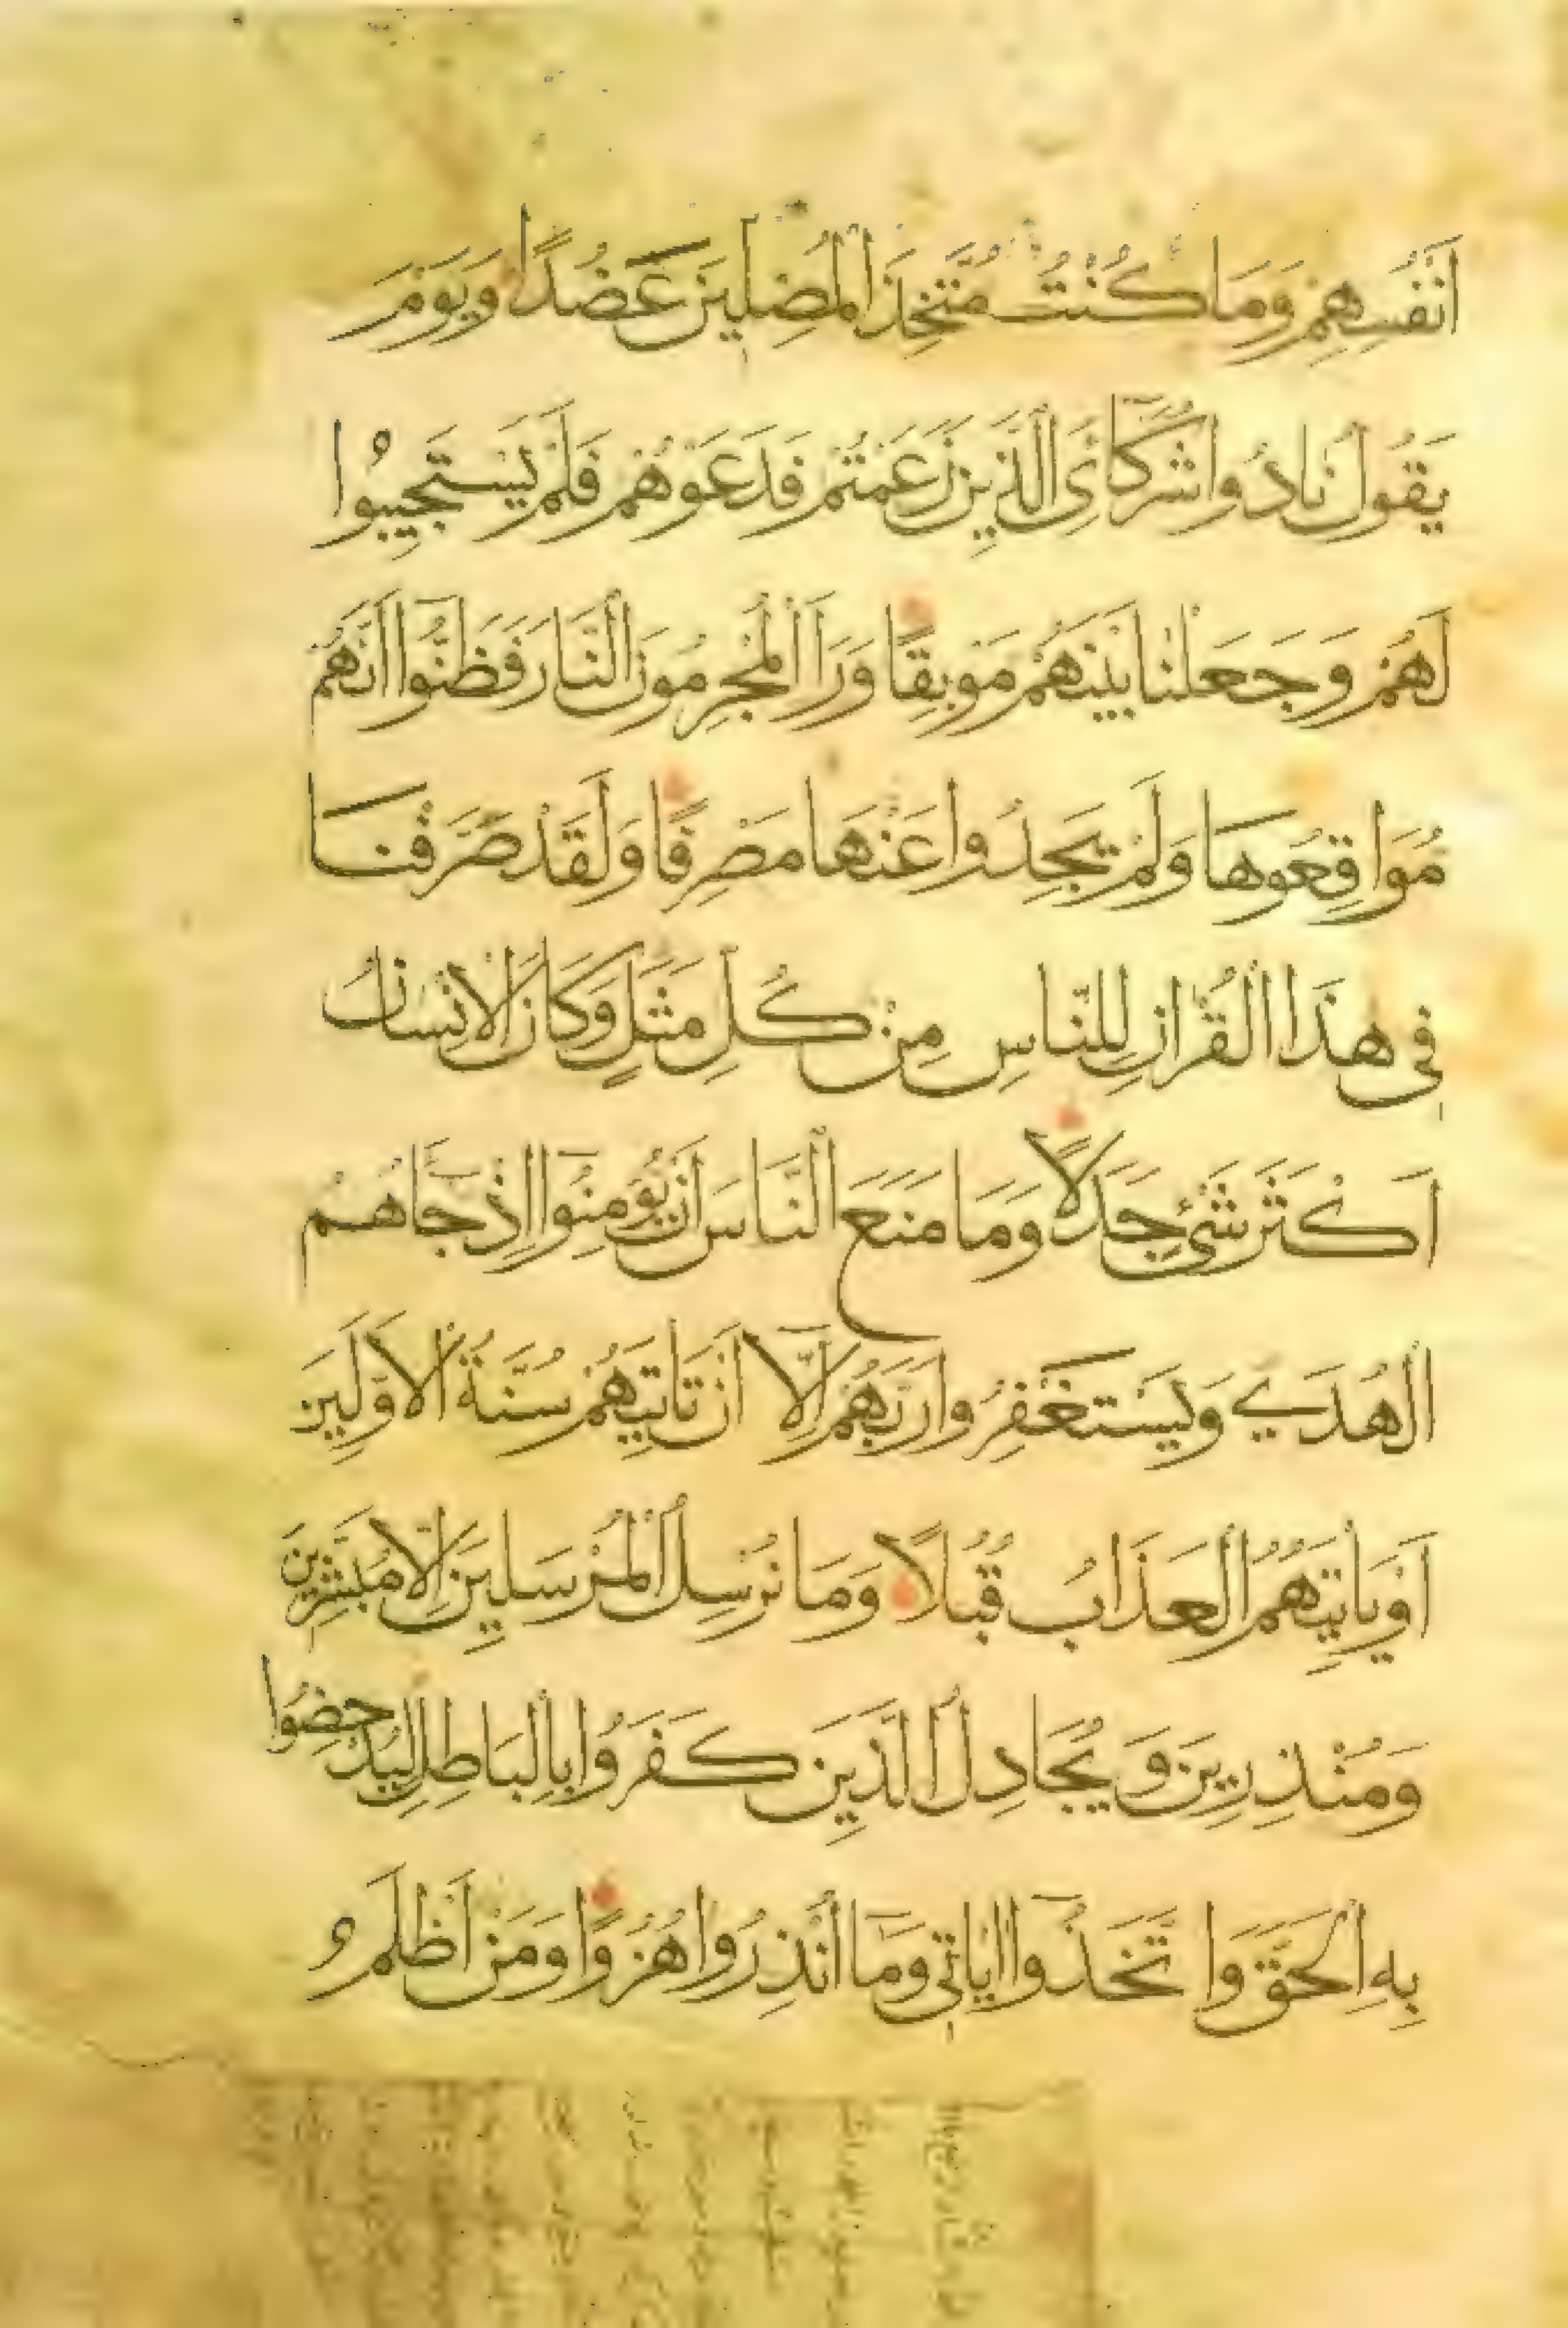 اَنْفُسِهِمْ وَمَا كُنْتُ مُتَّخِذَ الْمُضِلِّينَ عَضُدًا وَيَوْمَ
يَقُولُ نَادُوا شُرَكَآئِىَ الَّذِينَ زَعَمْتُمْ فَدَعَوْهُمْ فَلَمْ يَسْتَجِيبُوا
لَهُمْ وَجَعَلْنَا بَيْنَهُمْ مَوْبِقًا وَرَاَ الْمُجْرِمُونَ النَّارَ فَظَنُّوا اَنَّهُمْ
مُوَاقِعُوهَا وَلَمْ يَجِدُوا عَنْهَا مَصْرِفًا وَلَقَدْ صَرَّفْنَا
فِى هٰذَا الْقُرْاٰنِ لِلنَّاسِ مِنْ كُلِّ مَثَلٍ وَكَانَ الْاِنْسَانُ
اَكْثَرَ شَىْءٍ جَدَلًا وَمَا مَنَعَ النَّاسَ اَنْ يُؤْمِنُوا اِذْ جَآهُمُ
الْهُدَى وَيَسْتَغْفِرُوا رَبَّهُمْ اِلَّآ اَنْ تَاْتِيَهُمْ سُنَّةُ الْاَوَّلِينَ
اَوْ يَاْتِيَهُمُ الْعَذَابُ قُبُلًا وَمَا نُرْسِلُ الْمُرْسَلِينَ اِلَّا مُبَشِّرِينَ
وَمُنْذِرِينَ وَيُجَادِلُ الَّذِينَ كَفَرُوا بِالْبَاطِلِ لِيُدْحِضُوا
بِهِ الْحَقَّ وَاتَّخَذُوا اٰيَاتِى وَمَآ اُنْذِرُوا هُزُوًا وَمَنْ اَظْلَمُ